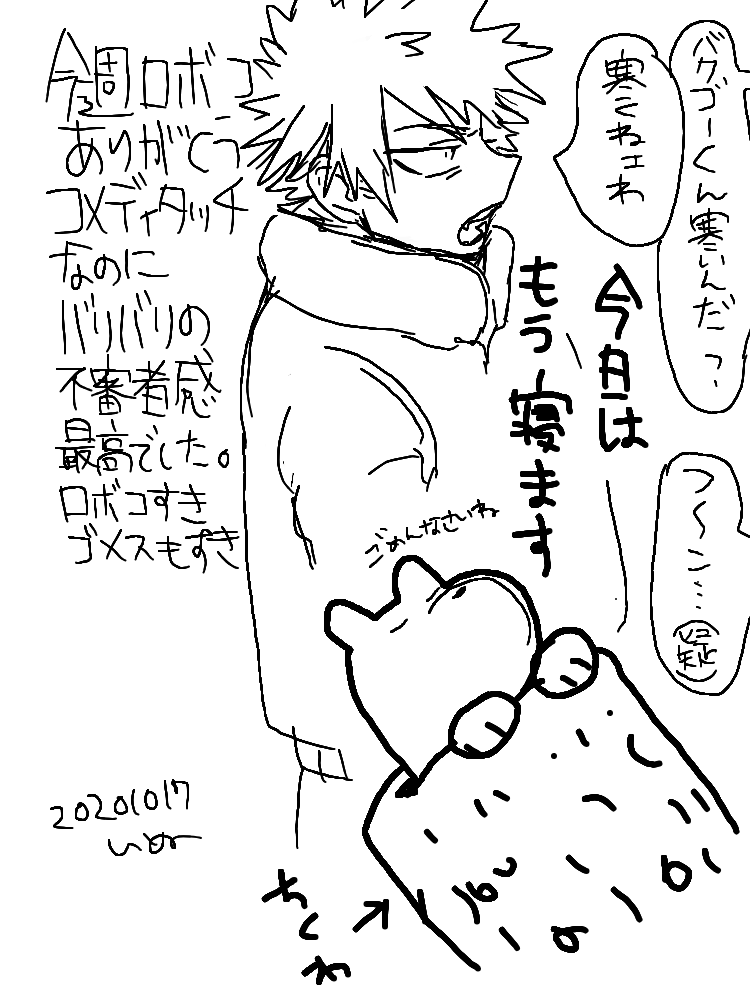 バクゴーくん寒いんだっ?
寒くねェわ
つ〜ン…
疑
今日は
もう寝ます
ごめんなさいね
今週ロボコ
ありがくっ
コメディタッチ
なのに
バリバリの
不審者感
最高でした。
ロボコすき
ゴメスもすき
20201017
ちくわ